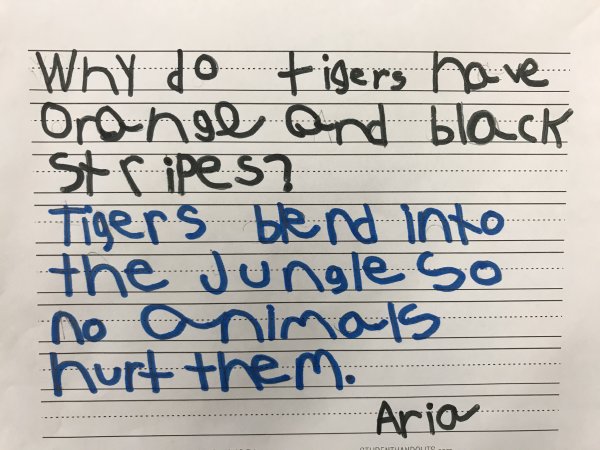 Why do tigers have
Orange and black
Stripes?
Tigers blend into
the Jungle So
no animals
hurt them.
Aria